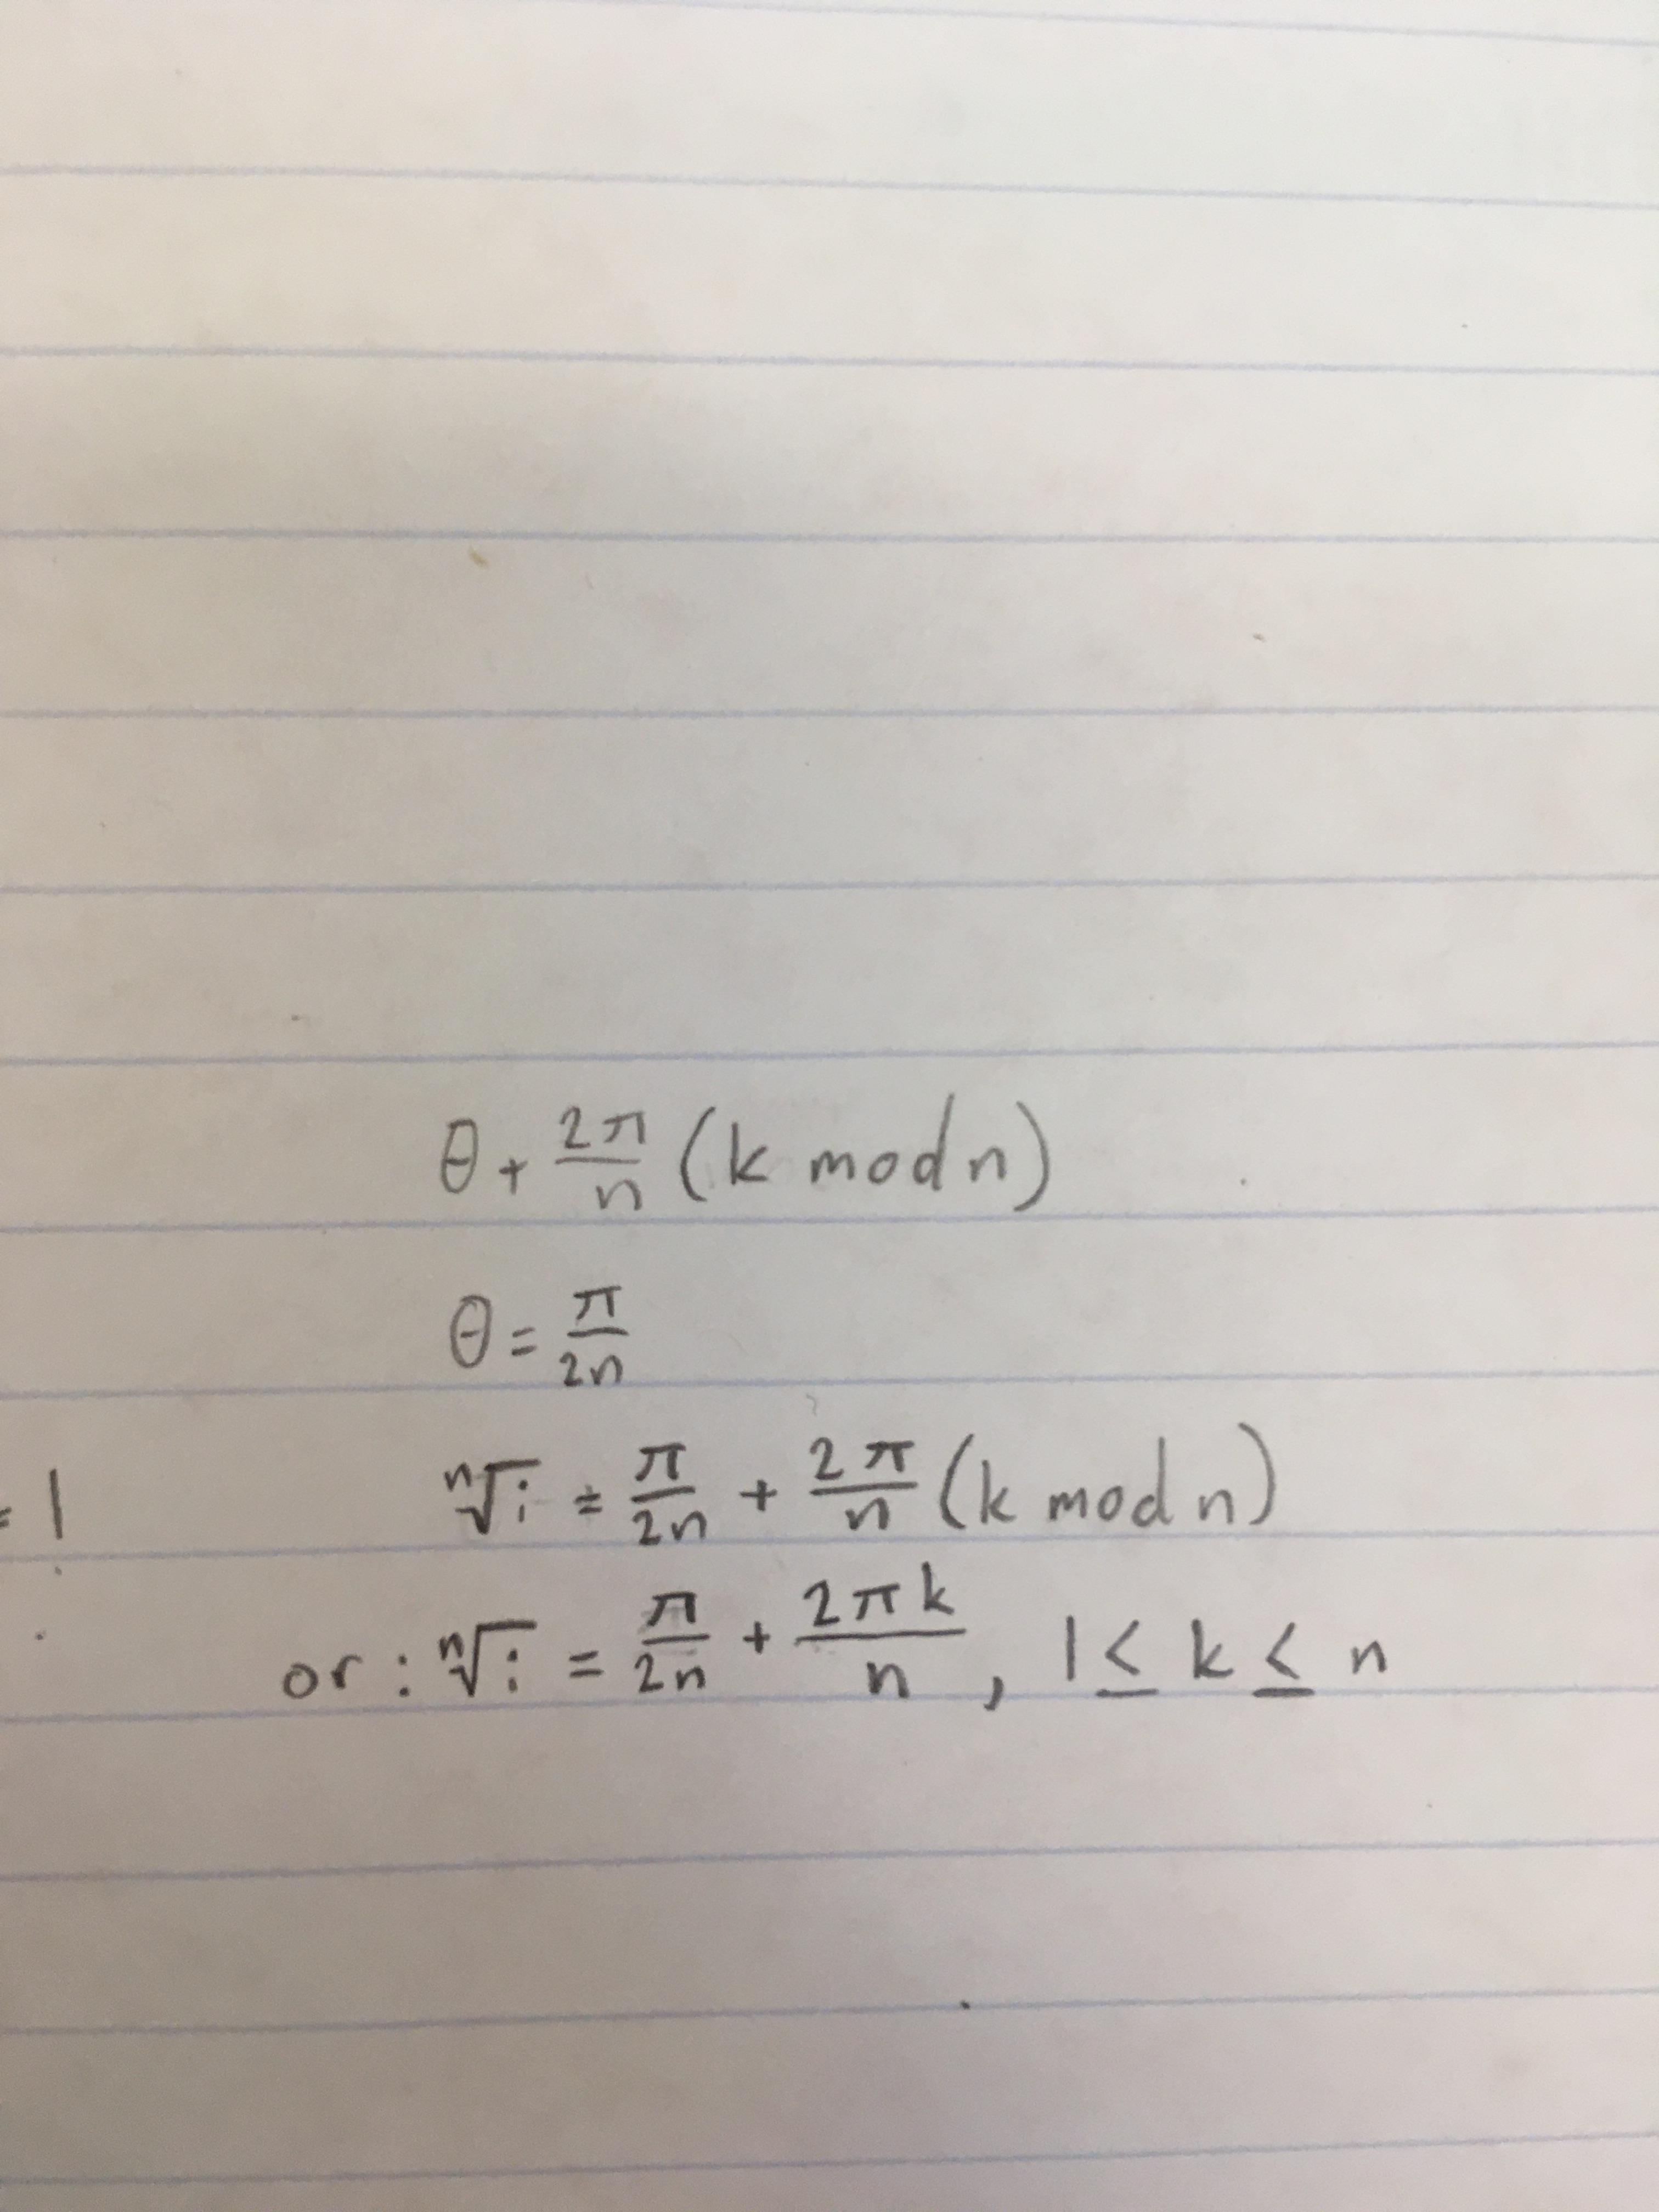 θ + 2π/n (k mod n)
θ = π/2n
= 1
ⁿ√i = π/2n + 2π/n (k mod n)
or: ⁿ√i = π/2n + 2πk/n, 1 ≤ k ≤ n